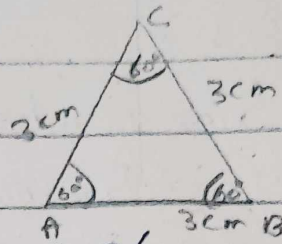 C
60°
3cm 3cm
60° 60°
A 3cm B